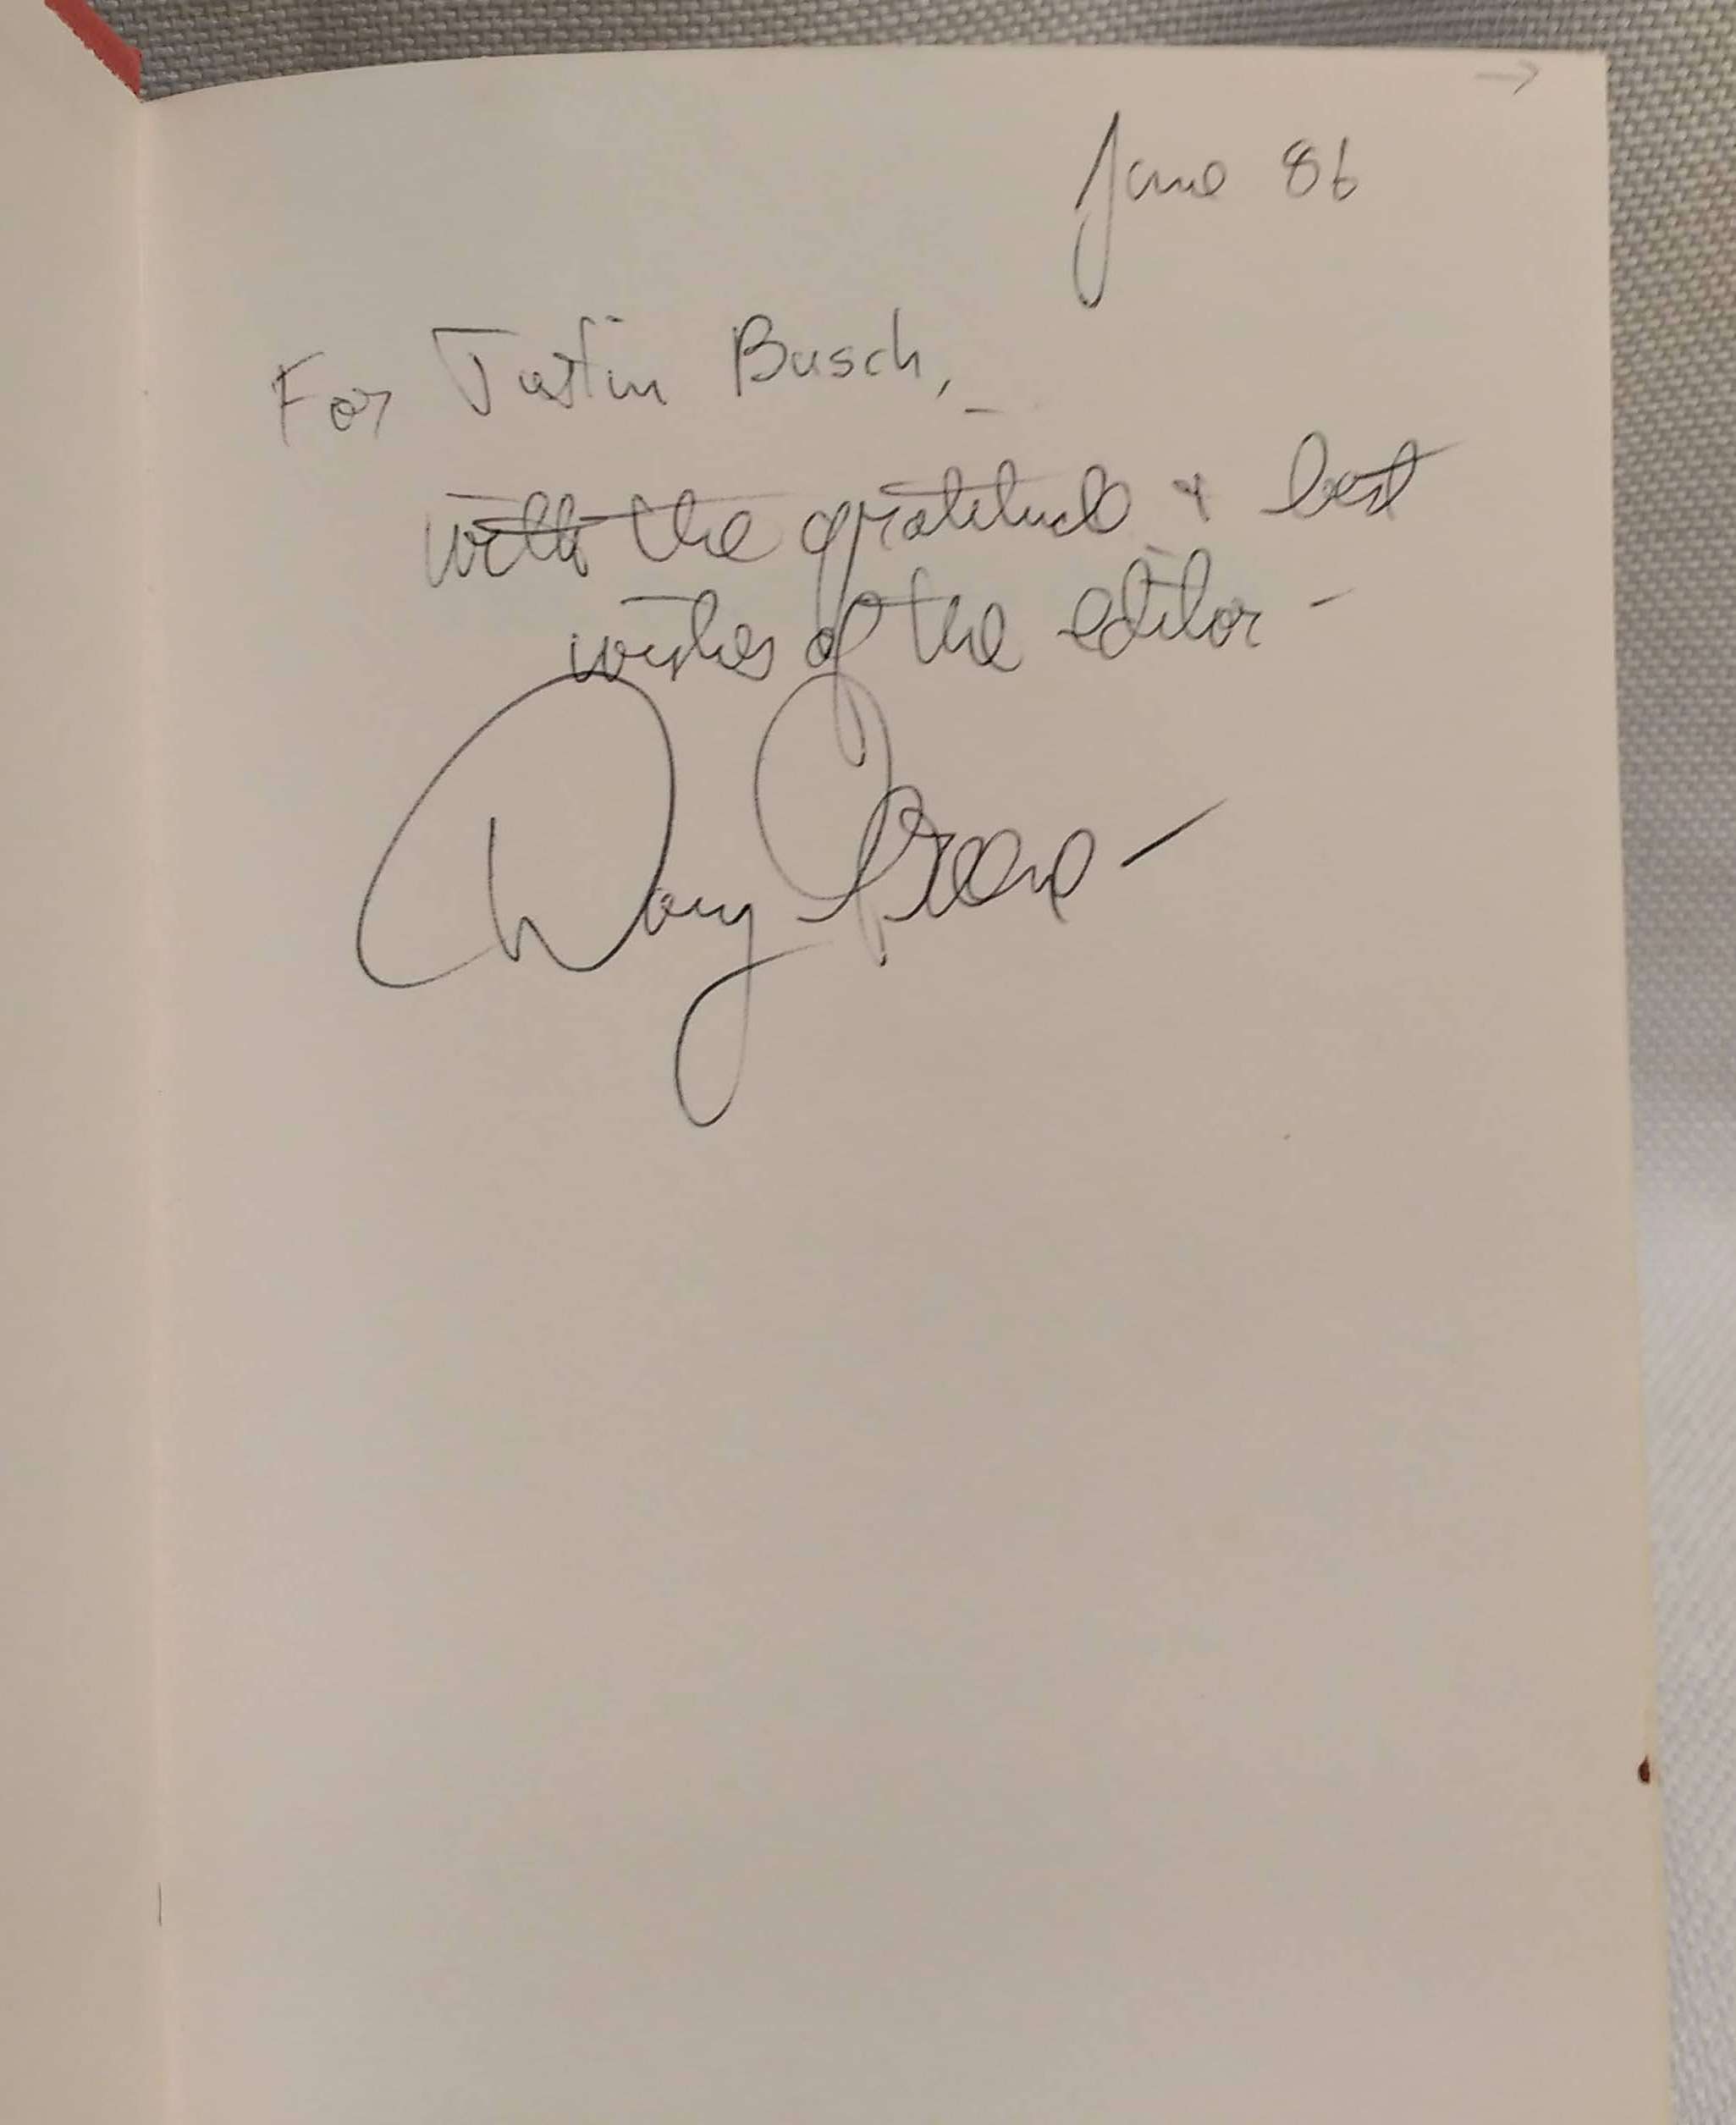 →
June 86
For Justin Busch, –
with the gratitude & best
wishes of the editor –
Greene –